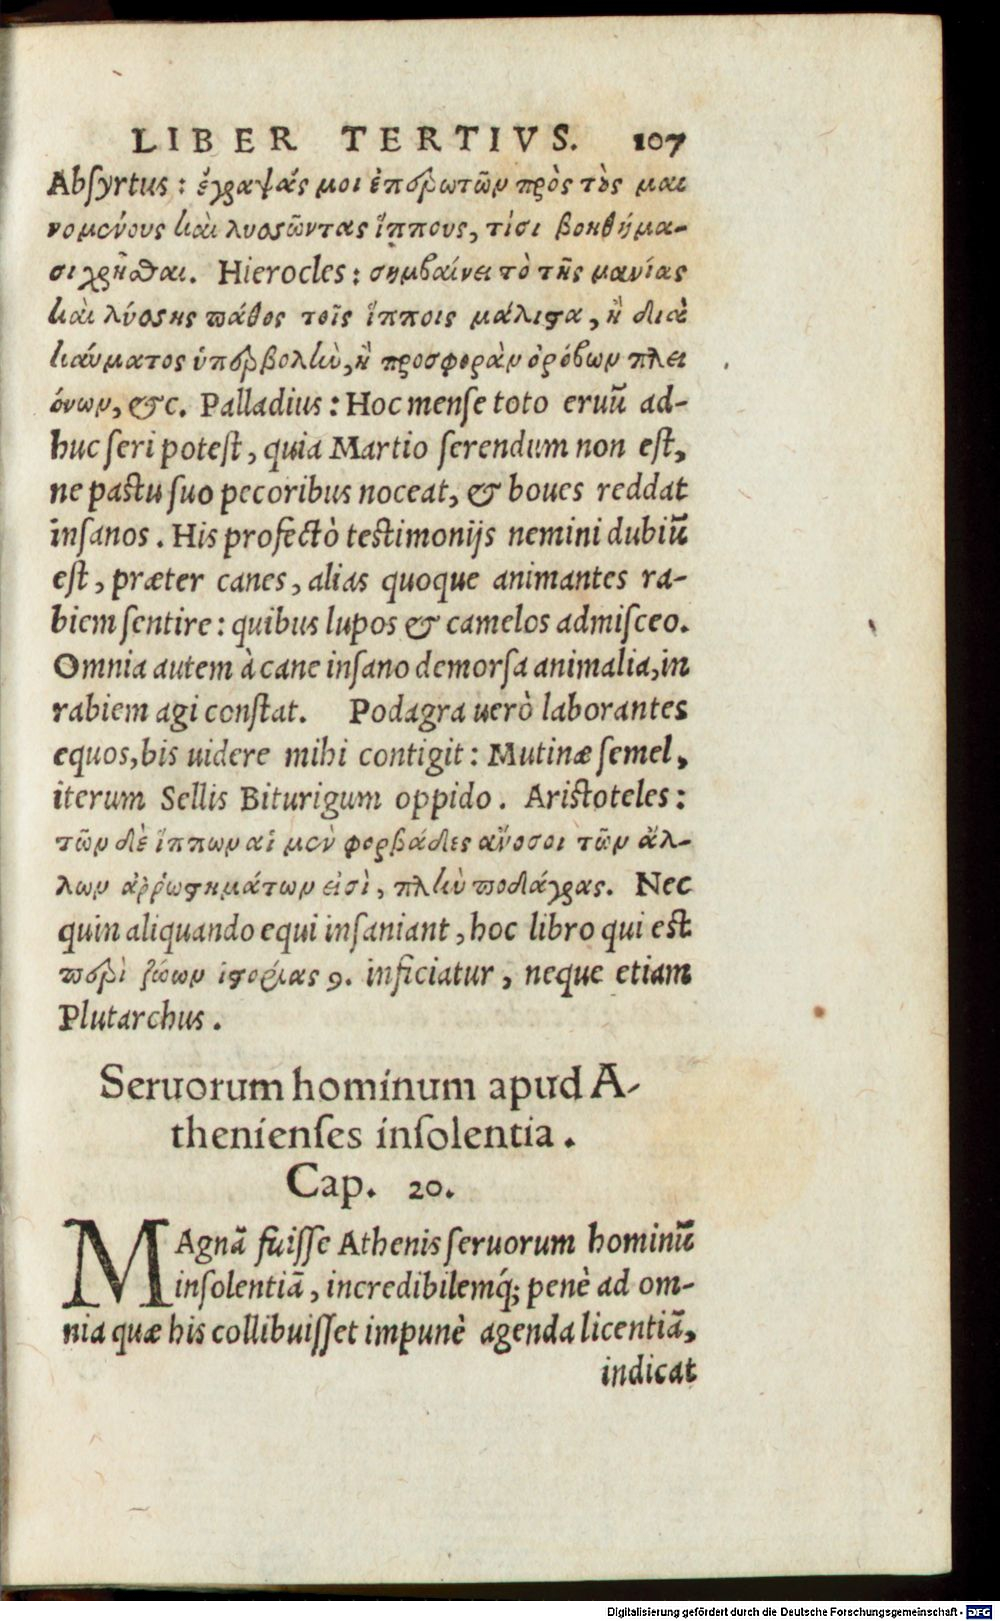 LIBER TERTIVS. 107
Abſyrtus: ἔγραψάς μοι ἐπερωτῶν πρὸς τοὺς μαι
νομένους καὶ λυσσῶντας ἵππους, τίσι βοηθήμα-
σι χρῆσθαι. Hierocles: σημβαίνει τὸ τῆς μανίας
καὶ λύσσης πάθος τοῖς ἵπποις μάλιστα, ἢ διὰ
καύματος ὑπερβολὴν, ἢ προσφορὰν ὀρόβων πλει
όνων, &c. Palladius: Hoc menſe toto eruũ ad-
huc ſeri poteſt, quia Martio ſerendum non eſt,
ne paſtu ſuo pecoribus noceat, & boues reddat
inſanos. His profectò teſtimonijs nemini dubiũ
eſt, præter canes, alias quoque animantes ra-
biem ſentire: quibus lupos & camelos admiſceo.
Omnia autem à cane inſano demorſa animalia, in
rabiem agi conſtat. Podagra uerò laborantes
equos, bis uidere mihi contigit: Mutinæ ſemel,
iterum Sellis Biturigum oppido. Ariſtoteles:
τῶν δὲ ἵππων αἱ μὲν φορβάδες ἄνοσοι τῶν ἄλ-
λων ἀῤῥωστημάτων εἰσὶ, πλὴν ποδάγρας. Nec
quin aliquando equi inſaniant, hoc libro qui eſt
περὶ ζώων ἱστορίας 9. inficiatur, neque etiam
Plutarchus.
Seruorum hominum apud A-
thenienſes inſolentia.
Cap. 20.
MAgnã fuiſſe Athenis ſeruorum hominũ
inſolentiã, incredibilemq́; penè ad om-
nia quæ his collibuiſſet impunè agenda licentiã,
indicat
Digitalisierung gefördert durch die Deutsche Forschungsgemeinschaft - DFG